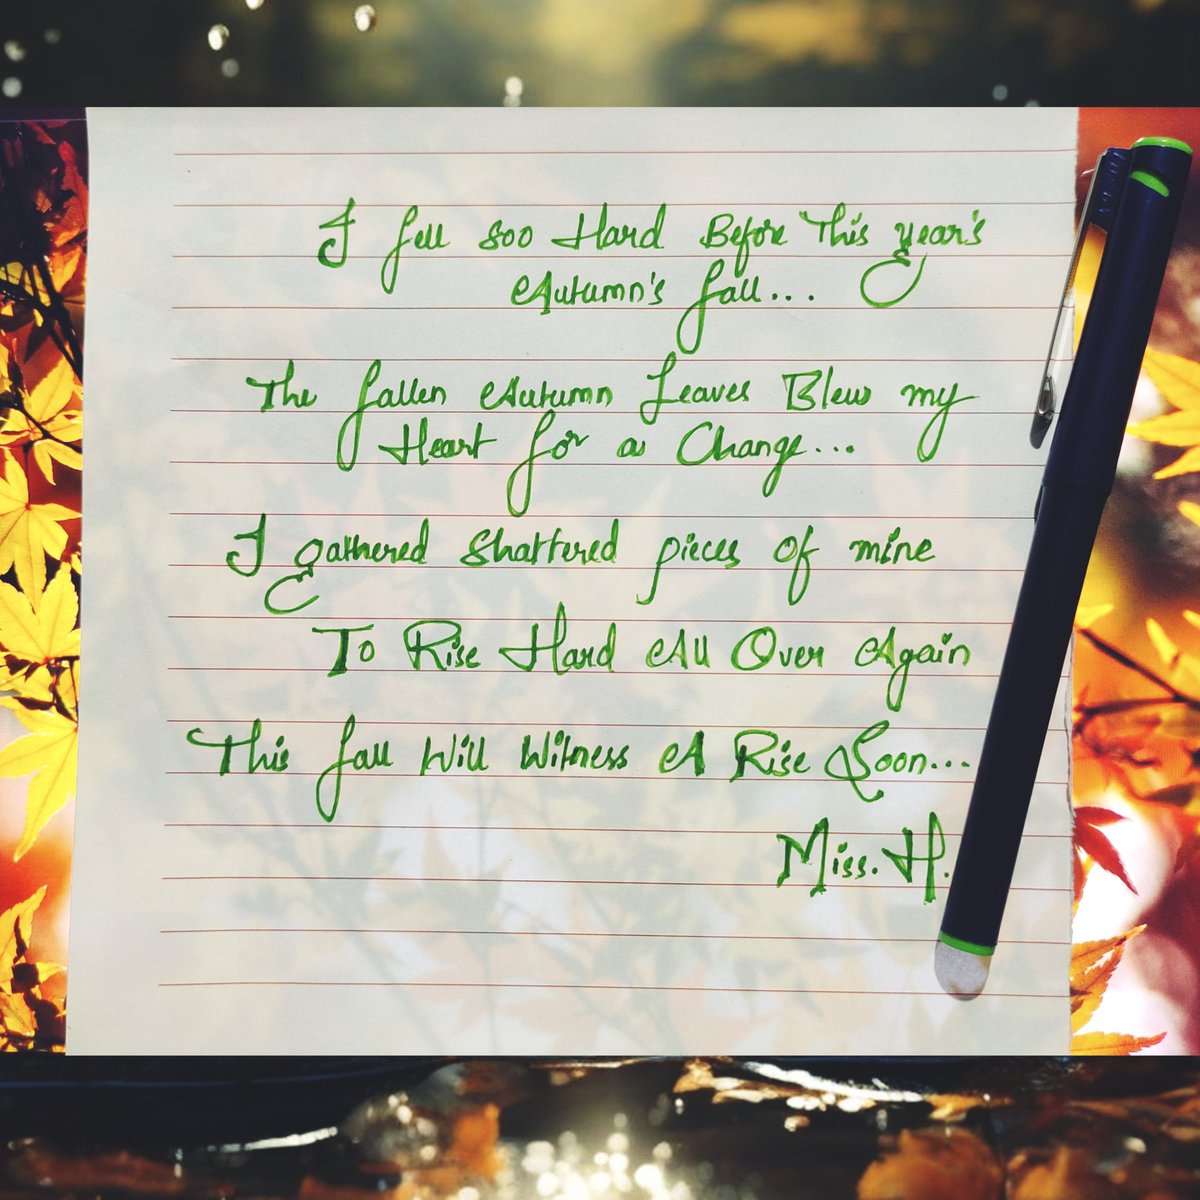 I fell soo Hard Before This year's
Autumn's fall...
The fallen Autumn Leaves Blew my
Heart for a Change...
I gathered Shattered pieces of mine
To Rise Hard All Over Again
This fall Will Witness A Rise Soon...
Miss. H.